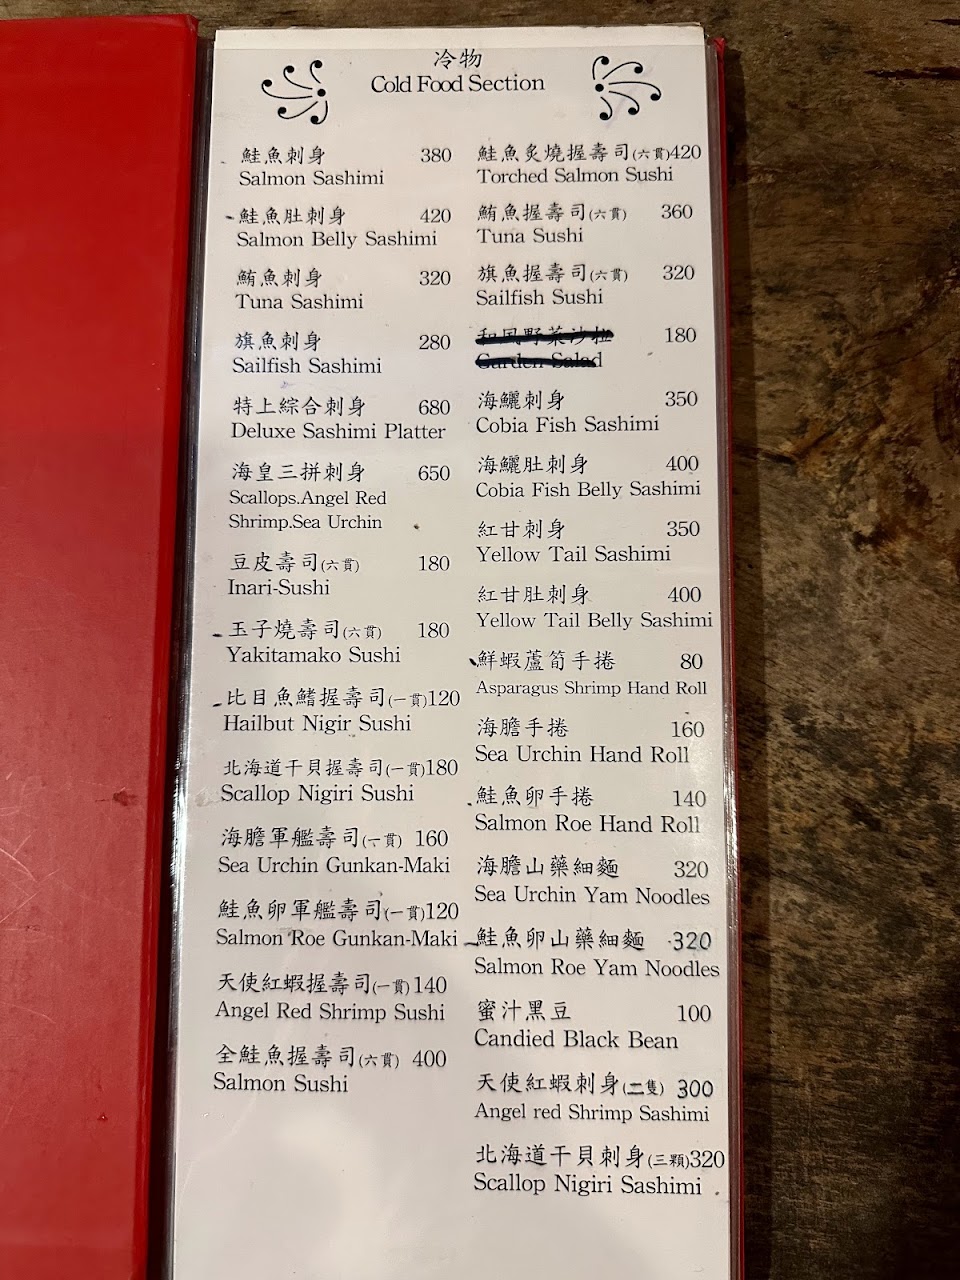 冷物
Cold Food Section
鮭魚刺身 380
Salmon Sashimi
鮭魚肚刺身 420
Salmon Belly Sashimi
鮪魚刺身 320
Tuna Sashimi
旗魚刺身 280
Sailfish Sashimi
特上綜合刺身 680
Deluxe Sashimi Platter
海皇三拼刺身 650
Scallops.Angel Red
Shrimp.Sea Urchin
豆皮壽司(六貫) 180
Inari-Sushi
玉子燒壽司(六貫) 180
Yakitamako Sushi
比目魚鰭握壽司(一貫)120
Hailbut Nigir Sushi
北海道干貝握壽司(一貫)180
Scallop Nigiri Sushi
海膽軍艦壽司(一貫) 160
Sea Urchin Gunkan-Maki
鮭魚卵軍艦壽司(一貫)120
Salmon Roe Gunkan-Maki
天使紅蝦握壽司(一貫)140
Angel Red Shrimp Sushi
全鮭魚握壽司(六貫) 400
Salmon Sushi
鮭魚炙燒握壽司(六貫)420
Torched Salmon Sushi
鮪魚握壽司(六貫) 360
Tuna Sushi
旗魚握壽司(六貫) 320
Sailfish Sushi
和風野菜沙拉 180
Garden Salad
海鱺刺身 350
Cobia Fish Sashimi
海鱺肚刺身 400
Cobia Fish Belly Sashimi
紅甘刺身 350
Yellow Tail Sashimi
紅甘肚刺身 400
Yellow Tail Belly Sashimi
鮮蝦蘆筍手捲 80
Asparagus Shrimp Hand Roll
海膽手捲 160
Sea Urchin Hand Roll
鮭魚卵手捲 140
Salmon Roe Hand Roll
海膽山藥細麵 320
Sea Urchin Yam Noodles
鮭魚卵山藥細麵 320
Salmon Roe Yam Noodles
蜜汁黑豆 100
Candied Black Bean
天使紅蝦刺身(二隻) 300
Angel red Shrimp Sashimi
北海道干貝刺身(三顆)320
Scallop Nigiri Sashimi